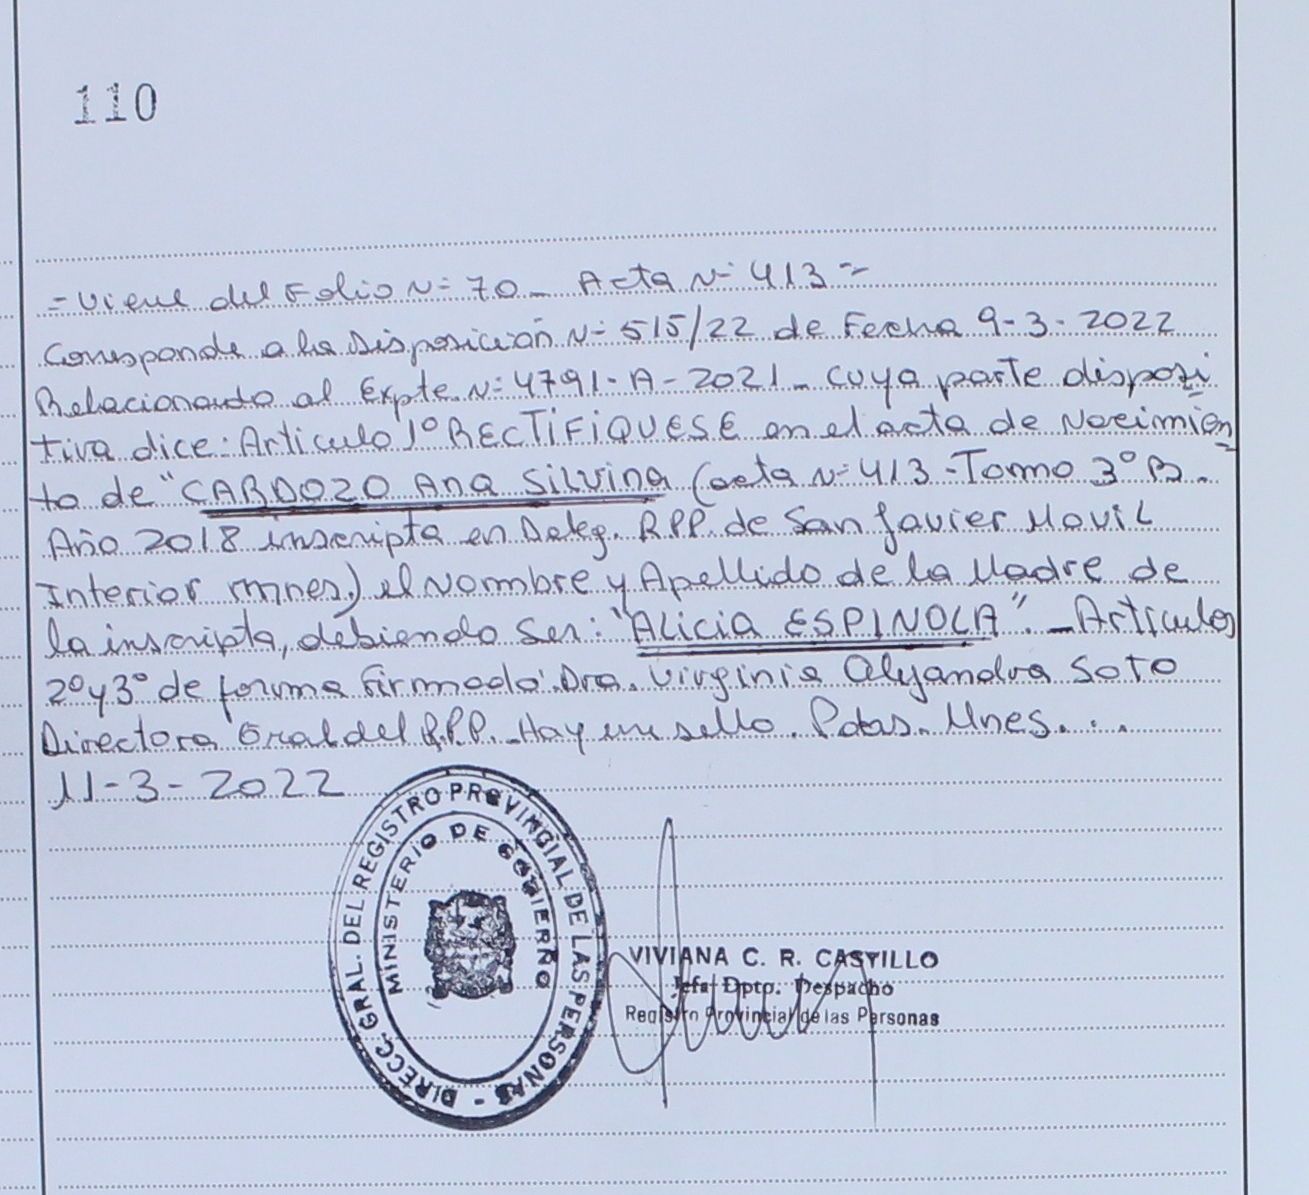 110
= Viene del Folio N= 70_ Acta N= 413 =
Corresponde a la Disposición N= 515/22 de Fecha 9-3-2022
Relacionado al Expte. N= 4791-A-2021_ cuya parte dispozi
tiva dice: Articulo 1º RECTIFIQUESE en el acta de Nacimien
to de "CARDOZO Ana Silvina (acta N= 413 - Tomo 3º B..
Año 2018 inscripta en Deleg. RPP. de San Javier Movil
Interior mnes.) el Nombre y Apellido de la Madre de
la inscripta, debiendo ser: "Alicia ESPINOLA". _ Articulos
2º y 3º de forma Firmado: Dra. Virginia Alejandra Soto
Directora Gral del R.P.P. _ Hay un sello. Pdas. Mnes....
11-3-2022
DIRECC. GRAL. DEL REGISTRO PROVINCIAL DE LAS PERSONAS -
MINISTERIO DE GOBIERNO
VIVIANA C. R. CASTILLO
Jefa Dpto. Despacho
Registro Provincial de las Personas